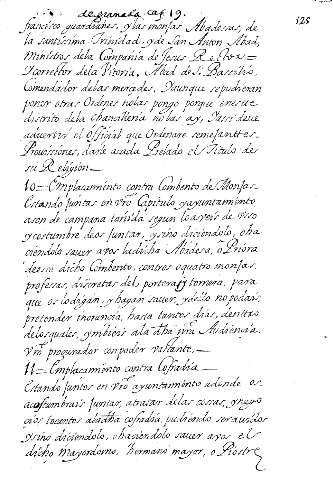 de granada cap 19.
325
francisco guardianes, y las monjas Abadesas, de
la santissima Trinidad, y de San Anton Abad,
Ministros de la Compania de Jesus R
Ycorrector de la Vitoria, Abad de S. Bassilio,
Comendador de las mercedes, Yaunque se pudieran
poner otras Ordenes no las pongo porque en este
distrito de la Chancilleria no las ay, Yassi deue
aduertir el Offiçial que Ordenare semejanttes
Prouissiones, darle acada Prelado el Titulo de
su Religion
10 = Emplaçamiento contra Combento de Monjas
Estando Juntas en vrõ Capitulo y ayuntamiento
a son de campana tañida segun lo aueis de vsso
y costumbre de os juntar, y sino diciendolo, o ha
ciendolo sauer a vos la dicha Abadesa, o Priora
de esse dicho Combento, con tres o quatro monjas,
profesas, discretas del porteria y tornera, para
que os lo digan, y hagan sauer, y dello no podais
pretender ignorancia, hasta tantos dias, dentro
de los quales, ymbieis a la dha nrã Audiencia
vrõ procurador con poder vastante,
11 = Emplaçamiento contra Cofradia
Estando Juntos en vrõ ayuntamiento adonde os
acostumbrais juntar, a tratar de las cosas, y nego
cios tocantes a la dha cofradia, pudiendo ser auidos
y sino diciendolo, o haciendolo sauer a vos el
dicho Mayordomo, hermano mayor, o Prioste